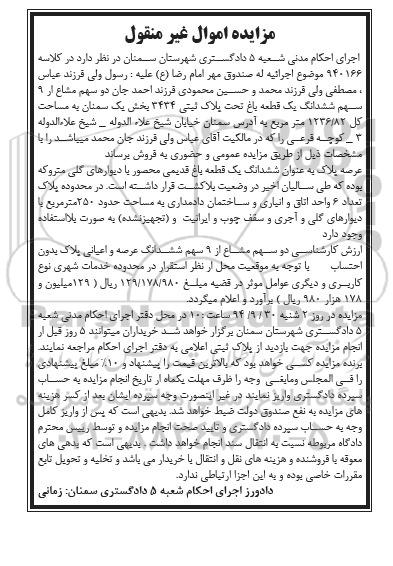 مزایده اموال غیر منقول
اجرای احکام مدنی شعبه ۵ دادگستری شهرستان سمنان در نظر دارد در کلاسه
۹۴۰۱۶۶ موضوع اجرائیه له صندوق مهر امام رضا (ع) علیه : رسول ولی فرزند عباس
، مصطفی ولی فرزند محمد و حسین محمودی فرزند احمد جان دو سهم مشاع از ۹
سهم ششدانگ یک قطعه باغ تحت پلاک ثبتی ۳۴۳۴ بخش یک سمنان به مساحت
کل ۱۲۳۶/۸۲ متر مربع به آدرس سمنان خیابان شیخ علاء الدوله _ شیخ علاءالدوله
۳ _ کوچه فرعی را که در مالکیت آقای عباس ولی فرزند جان محمد میباشد را با
مشخصات ذیل از طریق مزایده عمومی و حضوری به فروش برساند
عرصه پلاک به عنوان ششدانگ یک قطعه باغ قدیمی محصور با دیوارهای گلی متروکه
بوده که طی سالیان اخیر در وضعیت بلاکشت قرار داشته است. در محدوده پلاک
تعداد ۶ واحد اتاق و انباری و ساختمان دامداری به مساحت حدود ۲۵۰مترمربع با
دیوارهای گلی و آجری و سقف چوب و ایرانیت و (تجهیزنشده) به صورت بلااستفاده
وجود دارد
ارزش کارشناسی دو سهم مشاع از ۹ سهم ششدانگ عرصه و اعیانی پلاک بدون
احتساب با توجه به موقعیت محل از نظر استقرار در محدوده خدمات شهری نوع
کاربری و دیگری عوامل موثر در قضیه مبلغ ۱۲۹/۱۷۸/۹۸۰ ریال ( ۱۲۹میلیون و
۱۷۸ هزار ۹۸۰ ریال ) برآورد و اعلام میگردد.
مزایده در روز ۲ شنبه ۳۰ / ۹ / ۹۴ ساعت :۱۰ در محل دفتر اجرای احکام مدنی شعبه
۵ دادگستری شهرستان سمنان برگزار خواهد شد خریداران میتوانند ۵ روز قبل از
انجام مزایده جهت بازدید از پلاک ثبتی اعلامی به دفتر اجرای احکام مراجعه نمایند.
برنده مزایده کسی خواهد بود که بالاترین قیمت را پیشنهاد و ۱۰٪ مبلغ پیشنهادی
را فی المجلس ومابقی وجه را ظرف مهلت یکماه از تاریخ انجام مزایده به حساب
سپرده دادگستری واریز نمایند در غیر اینصورت وجه سپرده ایشان بعد از کسر هزینه
های مزایده به نفع صندوق دولت ضبط خواهد شد. بدیهی است که پس از واریز کامل
وجه به حساب سپرده دادگستری و تایید صحت انجام مزایده و توسط رییس محترم
دادگاه مربوطه نسبت به انتقال سند انجام خواهد داشت . بدیهی است که بدهی های
معوقه با فروشنده و هزینه های نقل و انتقال با خریدار می باشد و تخلیه و تحویل تابع
مقررات خاصی بوده و به این اجرا ارتباطی ندارد.
دادورز اجرای احکام شعبه ۵ دادگستری سمنان: زمانی